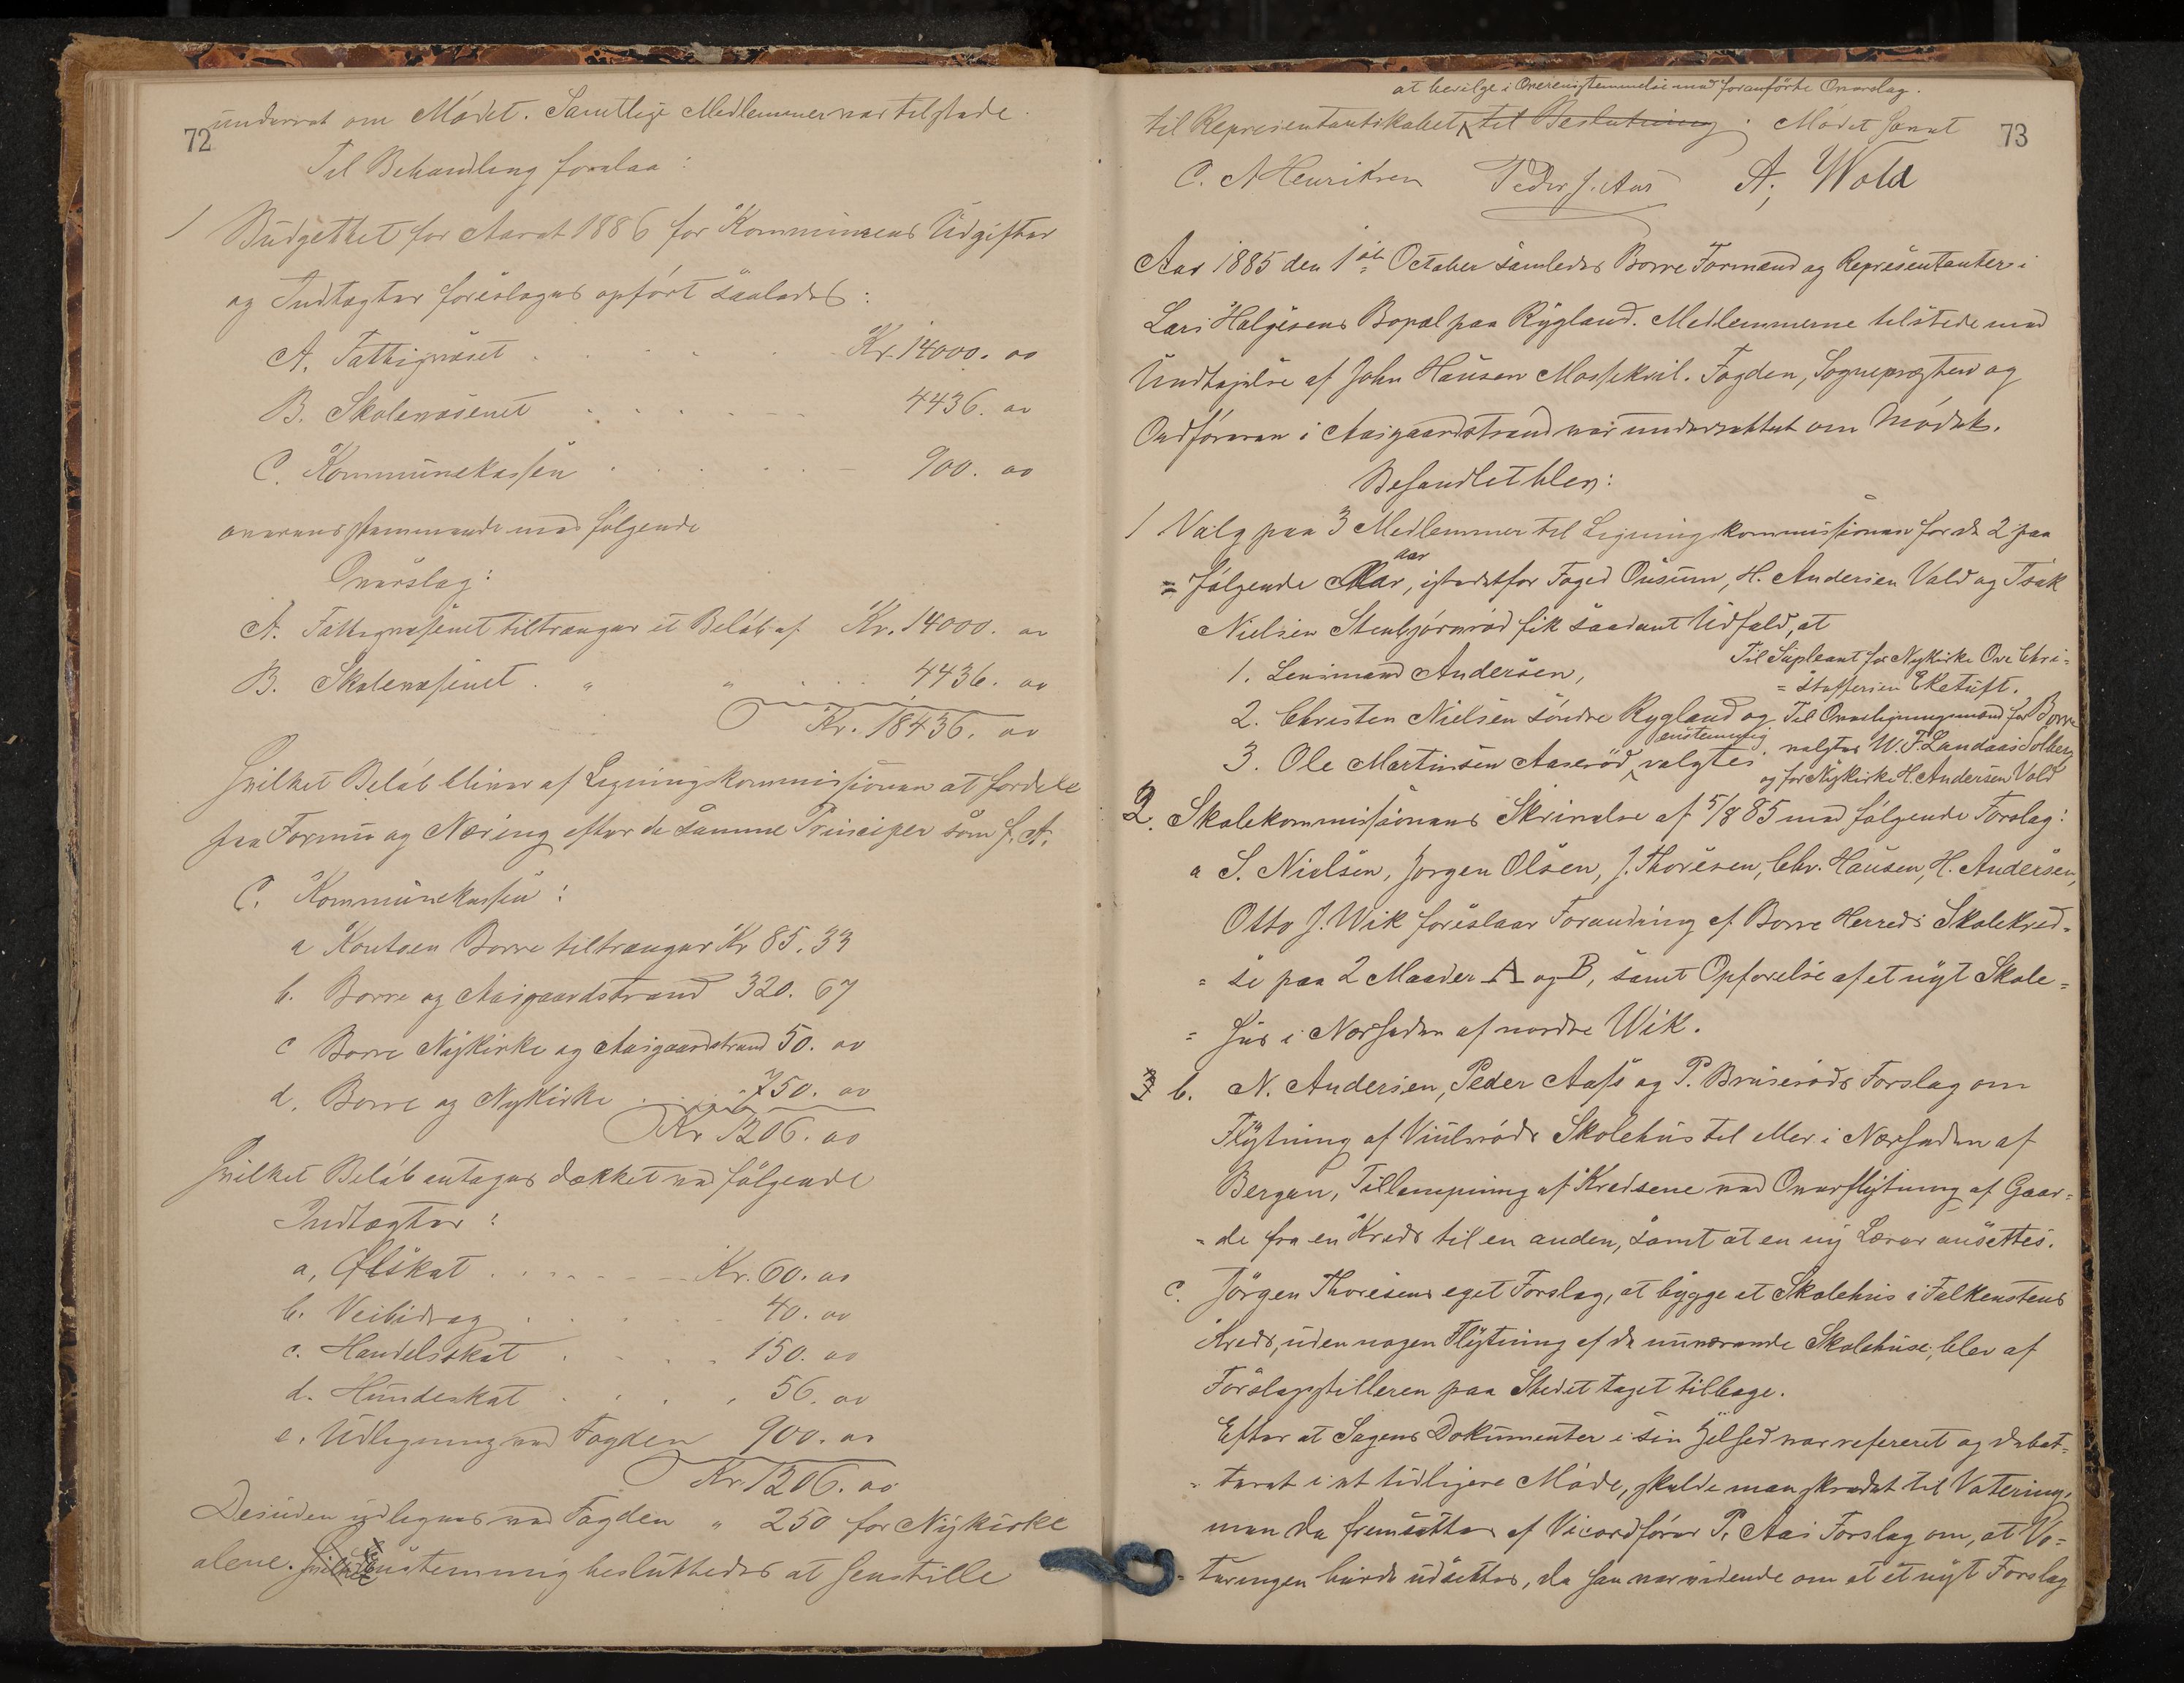 72
underret om Mødet. Samtlige Medlemmer var tilstede.
Til Behandling forelaa:
1 Budgettet for Aaret 1886 for Kommunens Udgifter
og Indtægter foreslages opført saaledes:
A. Fattigvæset . . . . Kr. 14000. oo
B. Skolevæsenet . . . . . 4436. oo
C. Kommunekassen . . . . . 900. oo
overensstemmende med følgende
Overslag:
A. Fattigvæsenet tiltrænger et Beløb af Kr. 14000. oo
B. Skolevæsenet . " " . . . 4436. oo
Kr. 18436. oo
Hvilket Beløb bliver af Ligningskommissionen at fordele
paa Formue og Næring efter de samme Principer som f. A.
C. Kommunekassen:
a Kontoen Borre tiltrænger Kr 85. 33
b. Borre og Aasgaardstrand 320. 67
c Borre Nykirke og Aasgaardstrand 50. oo
d. Borre og Nykirke . . . 750. oo
Kr 1206. oo
Hvilket Beløb antages dækket ved følgende
Indtægter:
a, Ølskat . . . . . Kr. 60. oo
b. Veibidrag . . . . . 40. oo
c. Handelsskat . . . . 150. oo
d. Hundeskat . . . . 56. oo
e. Udligning ved Fogden 900. oo
Kr. 1206. oo
Desuden udlignes ved Fogden " 250 for Nykirke
alene. Enstemmig besluttedes at henstille
73
at bevilge i Overensstemmelse med foranførte Overslag.
til Repræsentantskabet til Beslutning. Mødet hævet
C. A Henriksen Peder J. Aas A, Wold
Aar 1885 den 1ste October samledes Borre Formænd og Repræsentanter i
Lars Helgesens Bopæl paa Rygland. Medlemmerne tilstede med
Undtagelse af John Hansen Mossekvil. Fogden, Sognepresten og
Ordføreren i Aasgaardstrand var underrettet om Mødet.
Behandlet blev:
1 Valg paa 3 Medlemmer til Ligningskommissionen for de 2 paa
= følgende Aar, istedetfor Foged Ousum, H. Andersen Vold og Isak
aar
Nielsen Stenbjørnrød fik saadant Udfald, at
1. Lensmand Andersen,
Til Supleant for Nykirke Ove Chri=
= stoffersen Eketuft.
2. Christen Nielsen søndre Rygland og
Til Overligningsmænd for Borre
3. Ole Martinsen Aaserød enstemmig valgtes.
valgtes W. F. Landaas Solberg
og for Nykirke H. Andersen Vold
2. Skolekommissionens Skrivelse af 5/8 85 med følgende Forslag:
a S. Nielsen, Jørgen Olsen, J. Thoresen, Chr. Hansen, H. Andersen,
Otto J. Wik foreslaar Forandring af Borre Herreds Skolekred=
= se paa 2 Maader A og B, samt Opførelse af et nyt Skole=
= hus i Nærheden af nordre Wik.
b. N. Andersen, Peder Aass og P. Bruserøds Forslag om
Flytning af Viulsrøds Skolehus til eller i Nærheden af
Bergan, Tillempning af Kredsene ved Overflytning af Gaar=
= de fra en Kreds til en anden, samt at en ny Lærer ansettes.
c. Jörgen Thoresens eget Forslag, at bygge et Skolehus i Falkenstens
Kreds, uden nogen Flytning af de nuværende Skolehuse, blev af
Forslagsstilleren paa Stedet taget tilbage.
Efter at Sagens Dokumenter i sin Helhed var refereret og debat=
= teret i et tidligere Møde, skulde man skredet til Votering,
men da fremsattes af Viceordfører P. Aas Forslag om, at Vo=
= teringen burde udsettes, da han var vidende om at et nyt Forslag